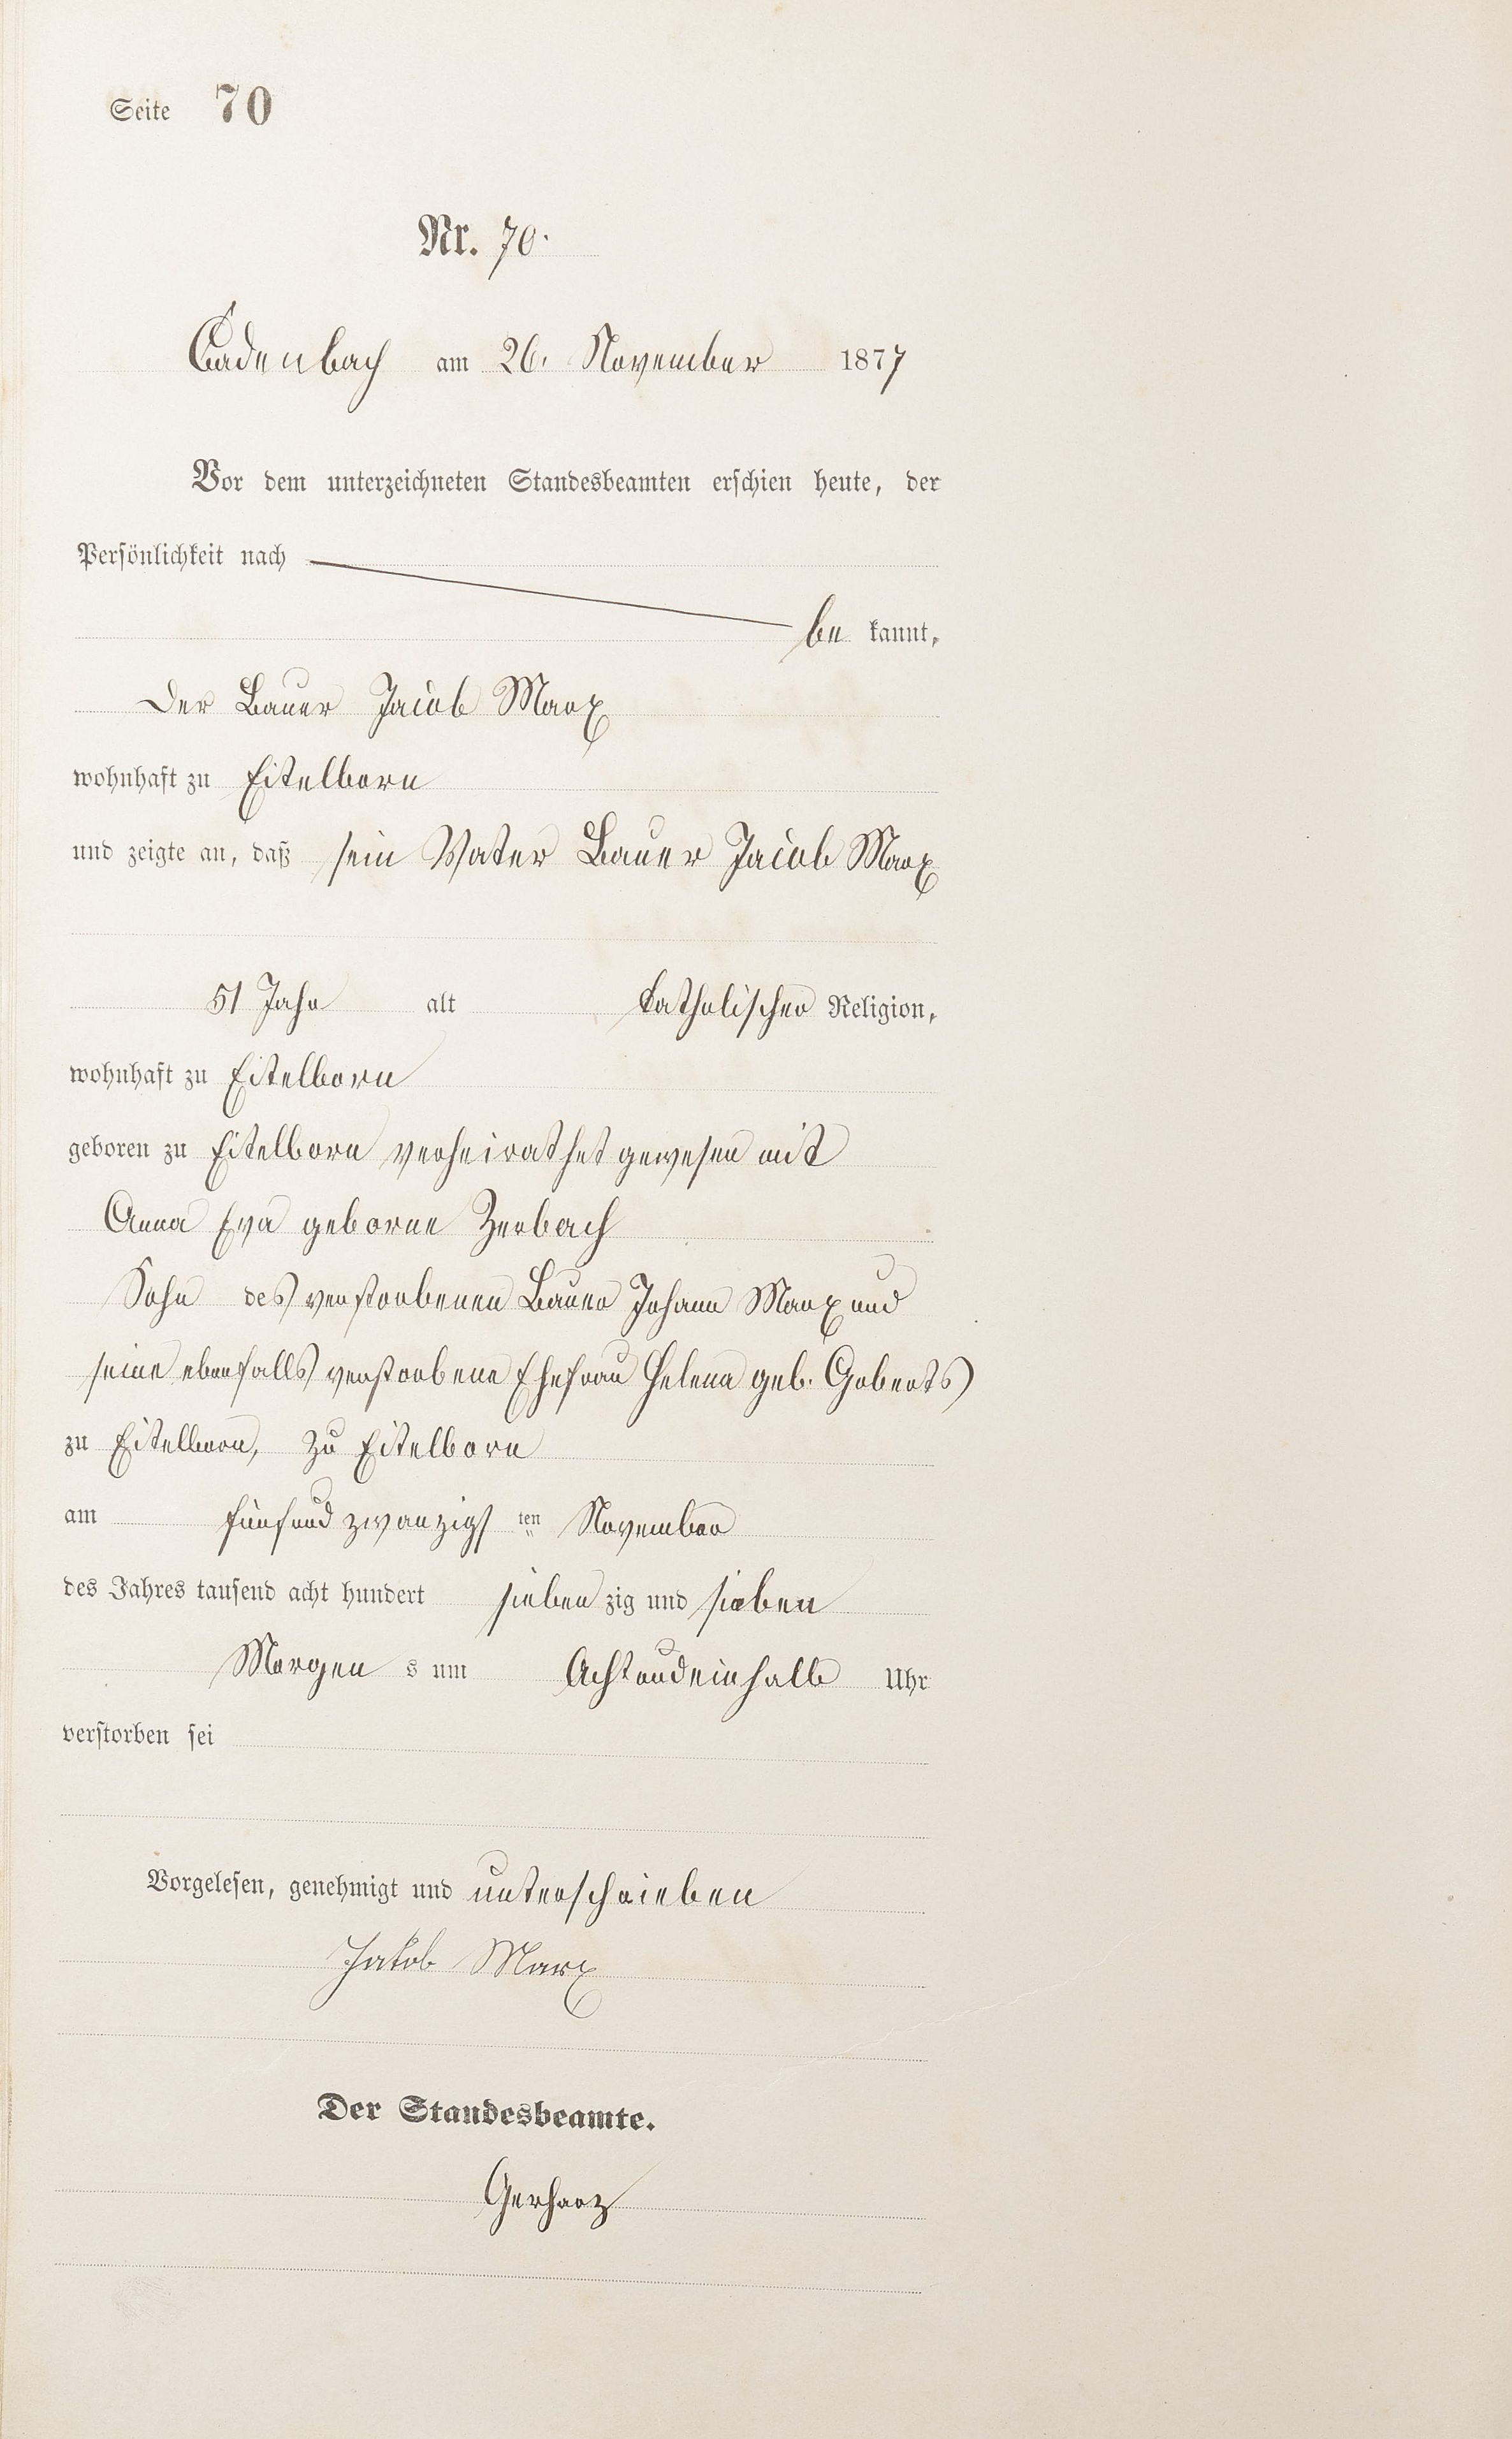 Seite 70
Nr. 70.
Cadenbach am 26. November 1877
Vor dem unterzeichneten Standesbeamten erschien heute, der
Persönlichkeit nach
be kannt,
Der Bauer Jacob Marx
wohnhaft zu Eitelborn
und zeigte an, daß sein Vater Bauer Jacob Marx
51 Jahr alt katholischer Religion,
wohnhaft zu Eitelborn
geboren zu Eitelborn verheirathet gewesen mit
Anna Eva geborne Zerbach
Sohn des verstorbenen Bauer Johann Marx und
seine ebenfalls verstorbene Ehefrau Helena geb. Goberts
zu Eitelborn, zu Eitelborn
am fünfund zwanzigs ten November
des Jahres tausend acht hundert sieben zig und sieben
Morgen s um Achtundeinhalb Uhr
verstorben sei
Vorgelesen, genehmigt und unterschrieben
Jakob Marx
Der Standesbeamte.
Gerharz